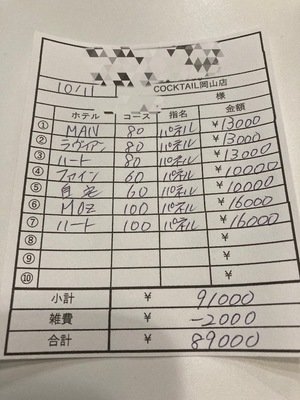 10/11
COCKTAIL岡山店
様
ホテル コース 指名 金額
① MAIN 80 パネル ¥13000
② ラヴィアン 80 パネル ¥13000
③ ハート 80 パネル ¥13000
④ ファイン 60 パネル ¥10000
⑤ 自宅 60 パネル ¥10000
⑥ MOZ 100 パネル ¥16000
⑦ ハート 100 パネル ¥16000
⑧ ¥
⑨ ¥
⑩ ¥
小計 ¥ 91000
雑費 ¥ -2000
合計 ¥ 89000